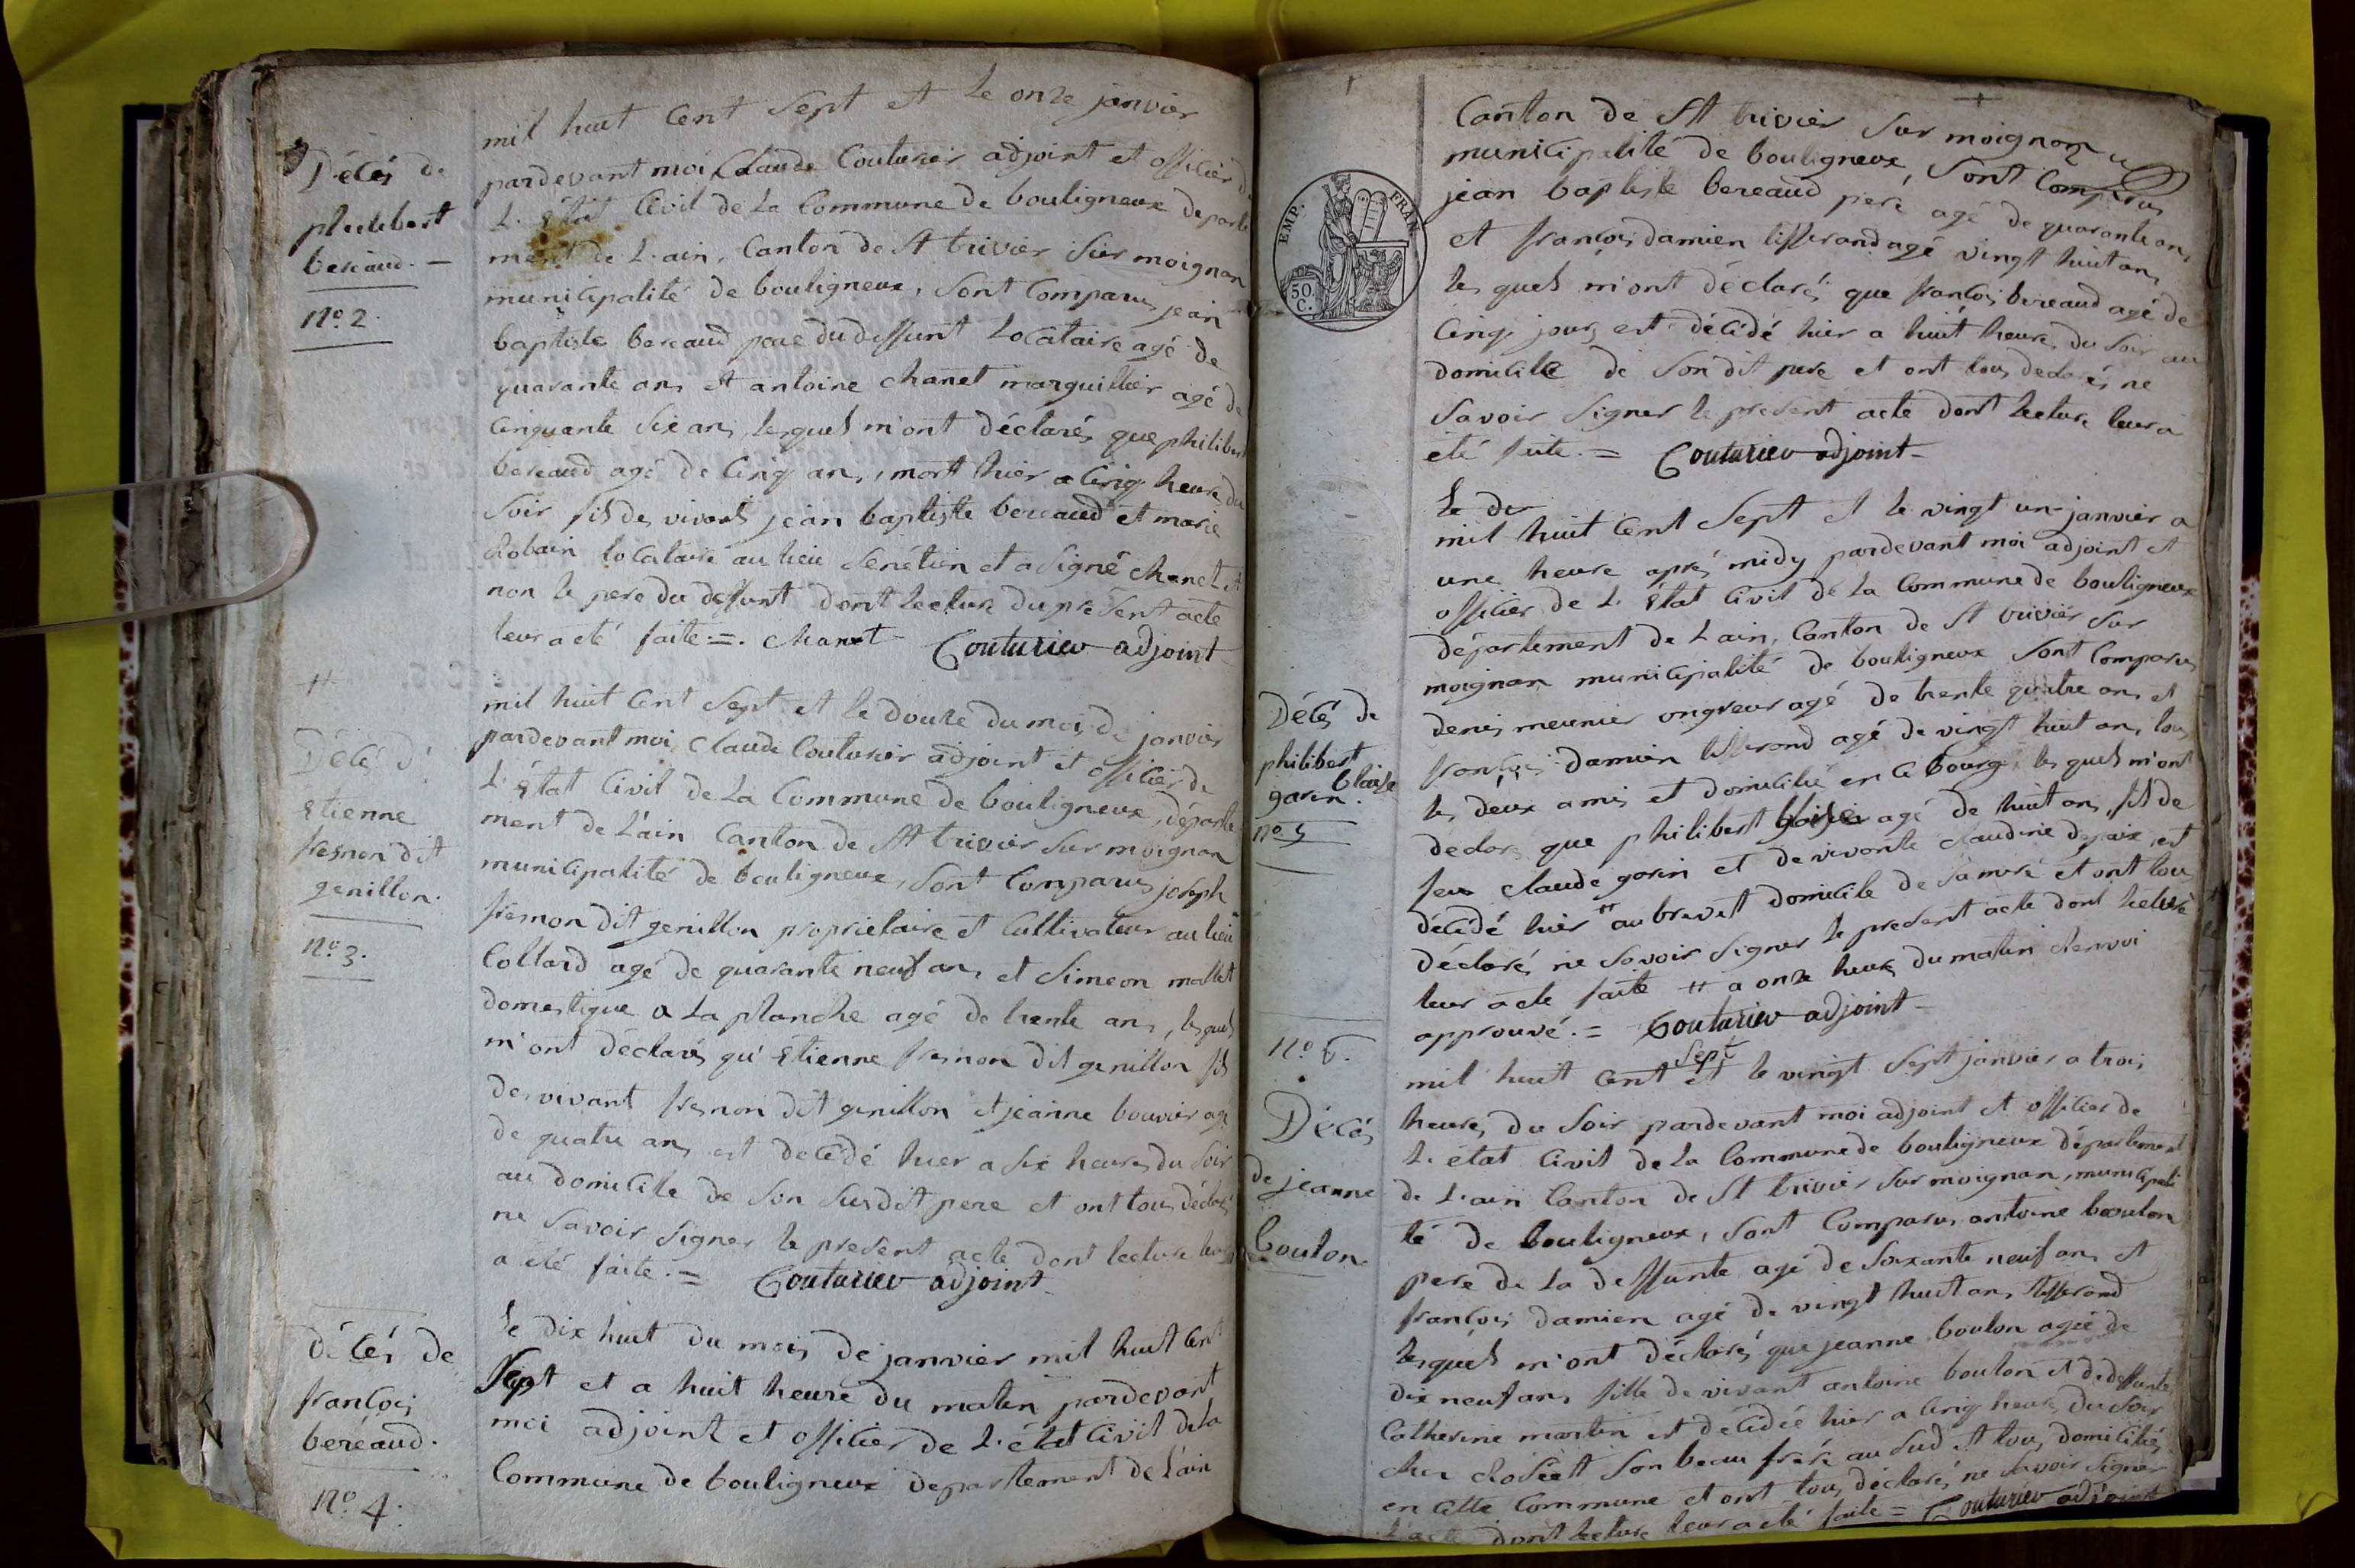 Décés de
philibert
bereaud. —
No. 2.
mil huit Cent Sept et le onze janvier
pardevant moi Claude Couturier adjoint et officier de
L. état Civil de La Commune de bouligneux departe
ment de L.ain, Canton de St trivier Sur moignan
municipalité de bouligneux, Sont Comparus jean
baptiste bereaud pere du deffunt Locataire agé de
quarante ans et antoine chanet marguillier agé de
Cinquante Six ans, lesquels m'ont déclarés que philibert
bereaud agé de Cinq ans, mort hier a Cinq heure du
Soir fils des vivants jean baptiste bereaud et marie
Robain locataire au lieu et a Signé chanet et
non le pere du deffunt dont lecture du présent acte
leur a eté faite. =. chanet Couturier adjoint
#
Décés d'
Etienne
fremon dit
genillon.
No. 3.
mil huit Cent Sept et le douze du mois de janvier
pardevant moi Claude Couturier adjoint et officier de
L. état Civil de La Commune de bouligneux, départe
ment de L'ain Canton de St trivier Sur moignan
municipalité de bouligneux, Sont Comparus joseph
fremon dit genillon propriétaire et Cultivateur au lieu
Collard agé de quarante neuf ans et Simeon mallet
domestique a La planche agé de trente ans, lesquels
m'ont déclarés qu'Etienne fremon dit genillon fils
des vivant fremon dit genillon et jeanne bouvier agé
de quatre ans est décédé hier a Six heures du Soir
au domicile de Son Susdit pere et ont tous déclarés
ne Savoir Signer le présent acte dont lecture leur
a été faite. = Couturier adjoint
décés de
françois
béreaud.
No. 4.
le dix huit du mois de janvier mil huit Cent
Sept et a huit heure du matin pardevant
moi adjoint et officier de L. état Civil de La
Commune de bouligneux departement de L'ain
EMP. FRAN.
50 C.
Canton de St trivier Sur moignan
municipalité de bouligneux, Sont Comparus
jean baptiste bereaud pere agé de quarante ans
et françois damien tisserand agé vingt huit ans
les quels m'ont déclarés que françois bereaud agé de
Cinq jours est décédé hier a huit heures du Soir au
domicile de Son dit pere et ont tous declarés ne
Savoir Signer le présent acte dont lecture leur a
été faite. = Couturier adjoint
Décés de
philibert
blaise
garin.
No 5
Le de
mil huit Cent Sept et le vingt un janvier a
une heure après midy pardevant moi adjoint et
officier de L. état Civil de La Commune de bouligneux
département de L'ain, Canton de St trivier Sur
moignan municipalité de bouligneux Sont Comparus
denis meunier ongreur agé de trente quatre ans et
françois damien tisserand agé de vingt huit ans, tous
les deux amis et domicilié en Ce bourg, les quels m'ont
declarés que philibert agé de huit ans, fils de
feu Claude garin et de vivante claudine depaix, est
décédé hier # au brevet domicile de Sa mere et ont tous
déclarés ne Savoir Signer le présent acte dont lecture
leur a eté faite # a onze heures du matin Renvoi
approuvé. = Couturier adjoint
No. 6.
Décés
de jeanne
bouton
mil huit Cent Sept et le vingt Sept janvier a trois
heures du Soir pardevant moi adjoint et officier de
L. état Civil de La Commune de bouligneux département
de L'ain Canton de St trivier Sur moignan, municipali
té de bouligneux, Sont Comparus antoine bouton
pere de La deffunte agé de Soixante neuf ans et
françois damien agé de vingt huit ans tisserand
lesquels m'ont déclarés que jeanne bouton agée de
dix neuf ans fille de vivant antoine bouton et de deffunte
Catherine martin est décédée hier a Cinq heures du Soir
chez Son beau frere au Sud et tous domiciliés
en Cette Commune et ont tous déclarés ne Savoir Signer
L'acte dont lecture leur a eté faite = Couturier adjoint